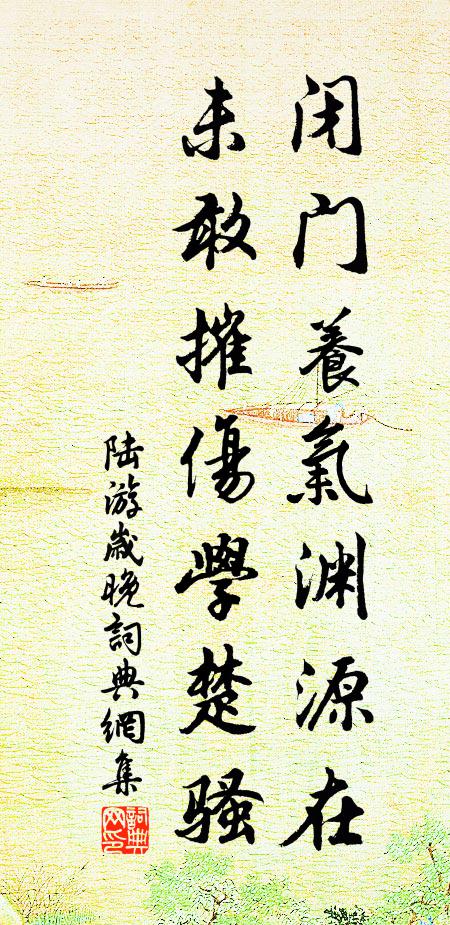 闭门養氣渊源在
未敢摧傷學楚骚
陆游歲晚詞典網集
詞典
网印